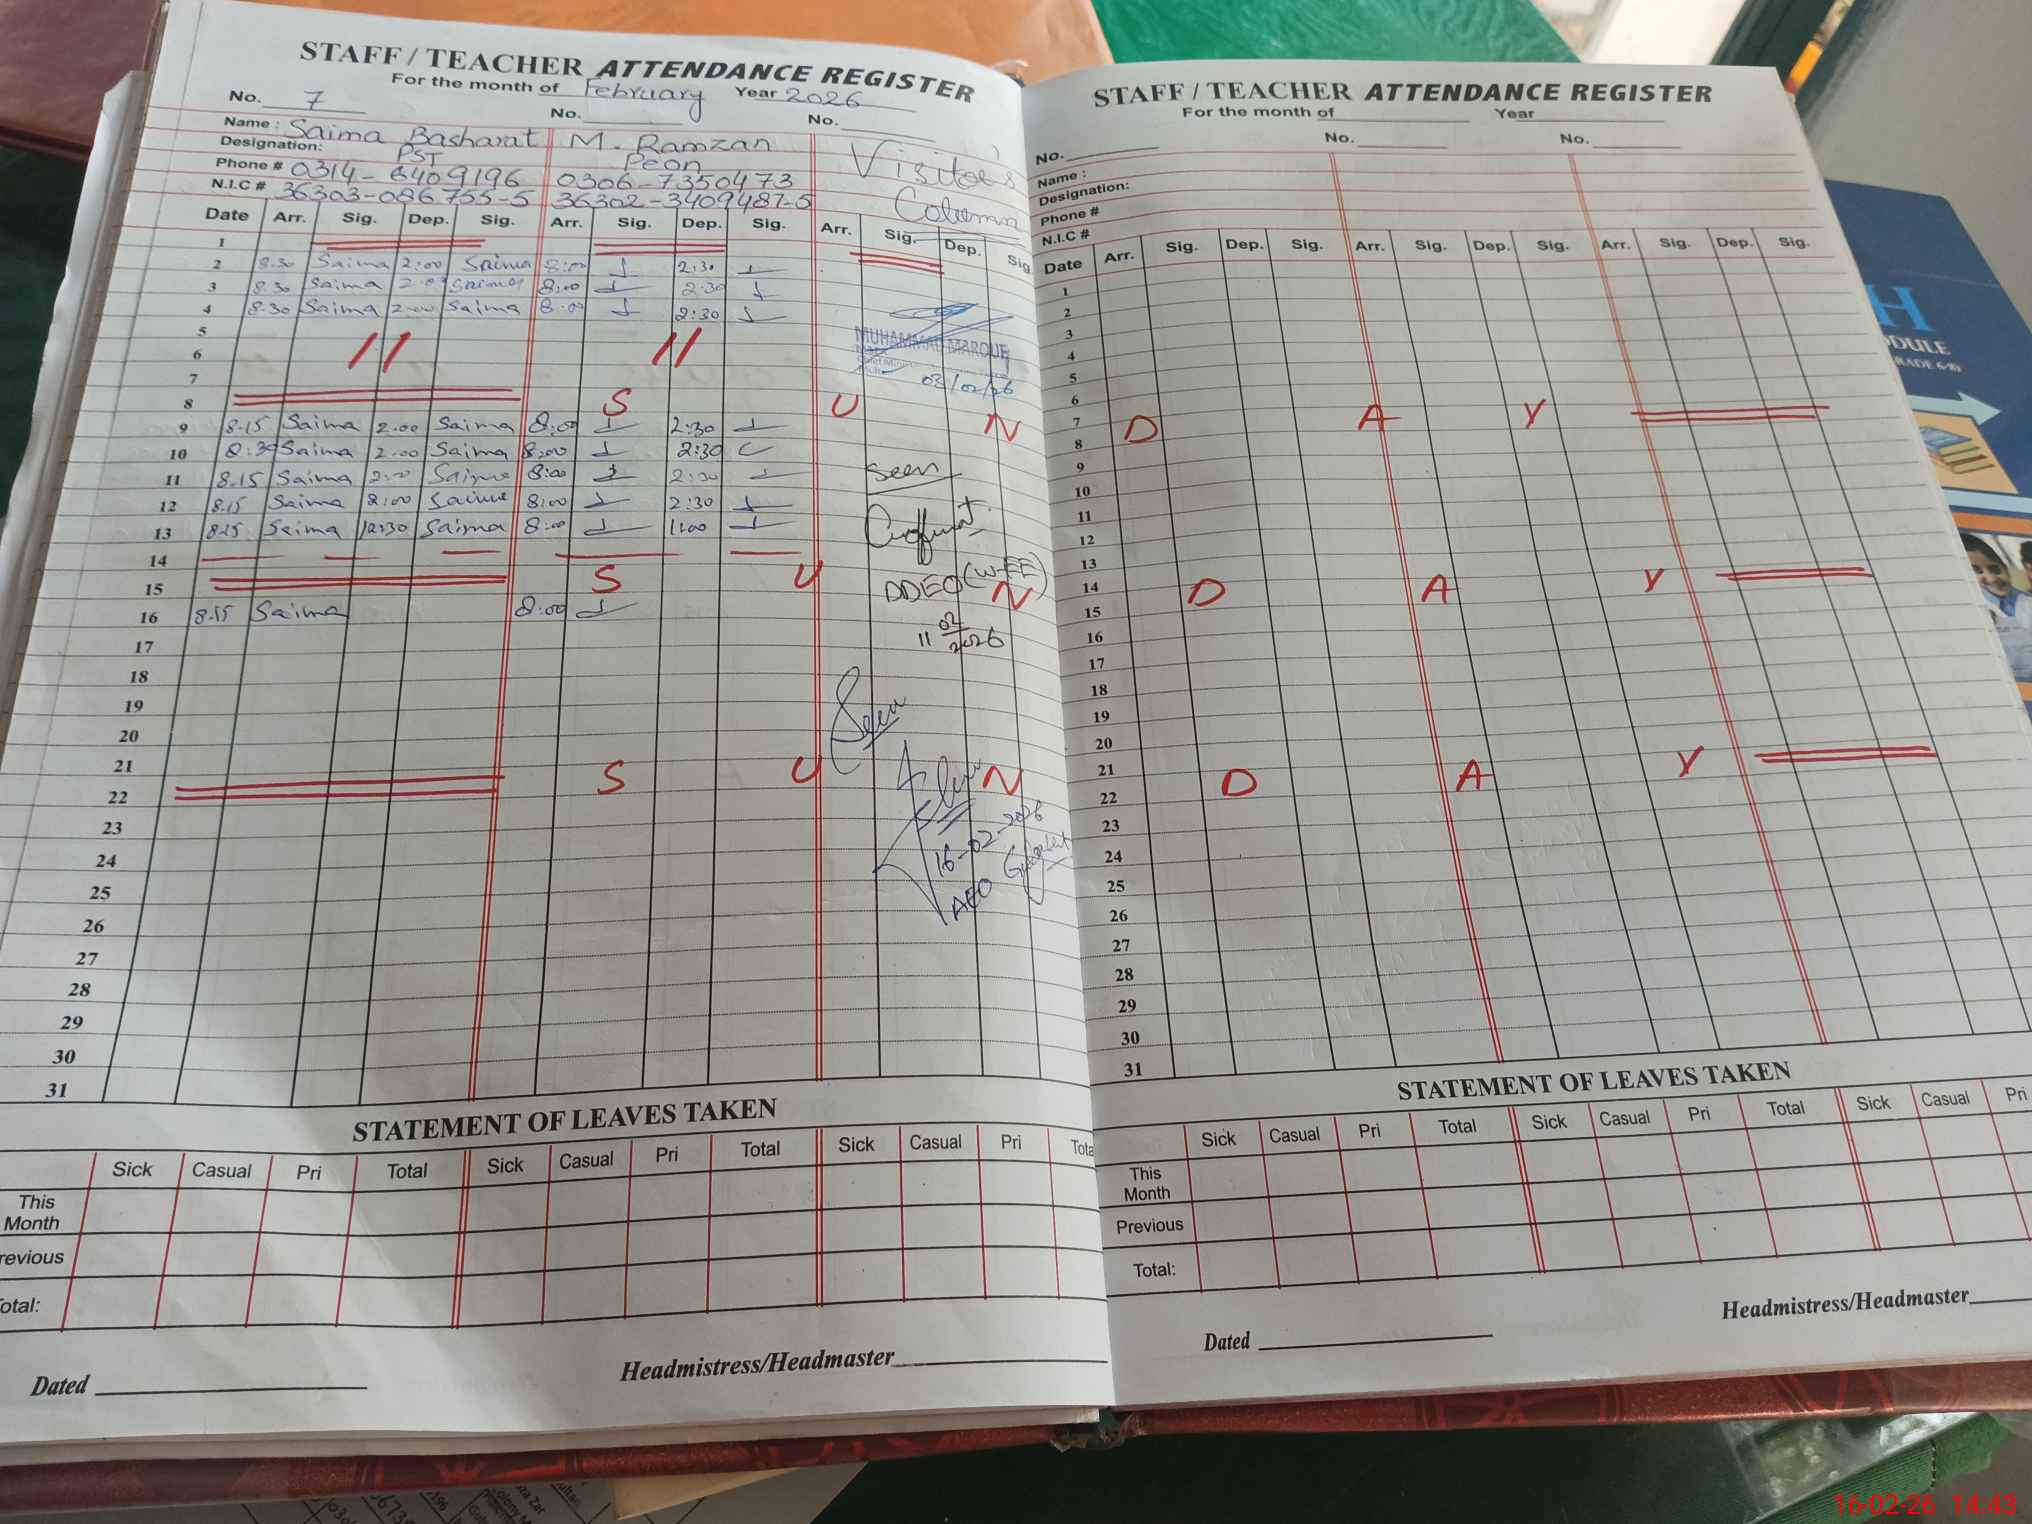 STAFF / TEACHER ATTENDANCE REGISTER
For the month of February Year 2026
No. 7 No. No.
Name : Saima Basharat M. Ramzan
Designation: PST Peon
Phone # 0314-6409196 0306-7350473
N.I.C # 36303-086755-5 36302-3409487-5
Visitors
Column
Date Arr. Sig. Dep. Sig. Arr. Sig. Dep. Sig. Arr. Sig. Dep. Sig
1
2 8.30 Saima 2:00 Saima 8:00 2:30
3 8.30 Saima 2.00 Saima 8:00 2:30
4 8.30 Saima 2.00 Saima 8.00 2:30
5
6 11 11
MUHAMMAD MAROUF
03/02/26
7
8 S U N
9 8.15 Saima 2.00 Saima 8:00 2:30
10 8:30 Saima 2.00 Saima 8:00 2:30
11 8.15 Saima 2:00 Saima 8:00 2:30
12 8.15 Saima 2:00 Saima 8:00 2:30
13 8.15 Saima 12:30 Saima 8:00 11:00
14
15 S U N
16 8.15 Saima 8:00
17
18
19
20
21
22 S U N
23
24
25
26
27
28
29
30
31
Seen
DDEO (W-EE)
11 02/2026
Seen
16-02-2026
AEO
STATEMENT OF LEAVES TAKEN
Sick Casual Pri Total Sick Casual Pri Total Sick Casual Pri Tota
This
Month
revious
otal:
Headmistress/Headmaster
Dated
STAFF / TEACHER ATTENDANCE REGISTER
For the month of Year
No. No. No.
Name :
Designation:
Phone #
N.I.C #
Date Arr. Sig. Dep. Sig. Arr. Sig. Dep. Sig. Arr. Sig. Dep. Sig.
1
2
3
4
5
6
7 D A Y
8
9
10
11
12
13
14 D A Y
15
16
17
18
19
20
21 D A Y
22
23
24
25
26
27
28
29
30
31
STATEMENT OF LEAVES TAKEN
Sick Casual Pri Total Sick Casual Pri Total Sick Casual Pri
This
Month
Previous
Total:
Headmistress/Headmaster
Dated
H
ODULE
RADE 6-8)
16-02-26 14:43